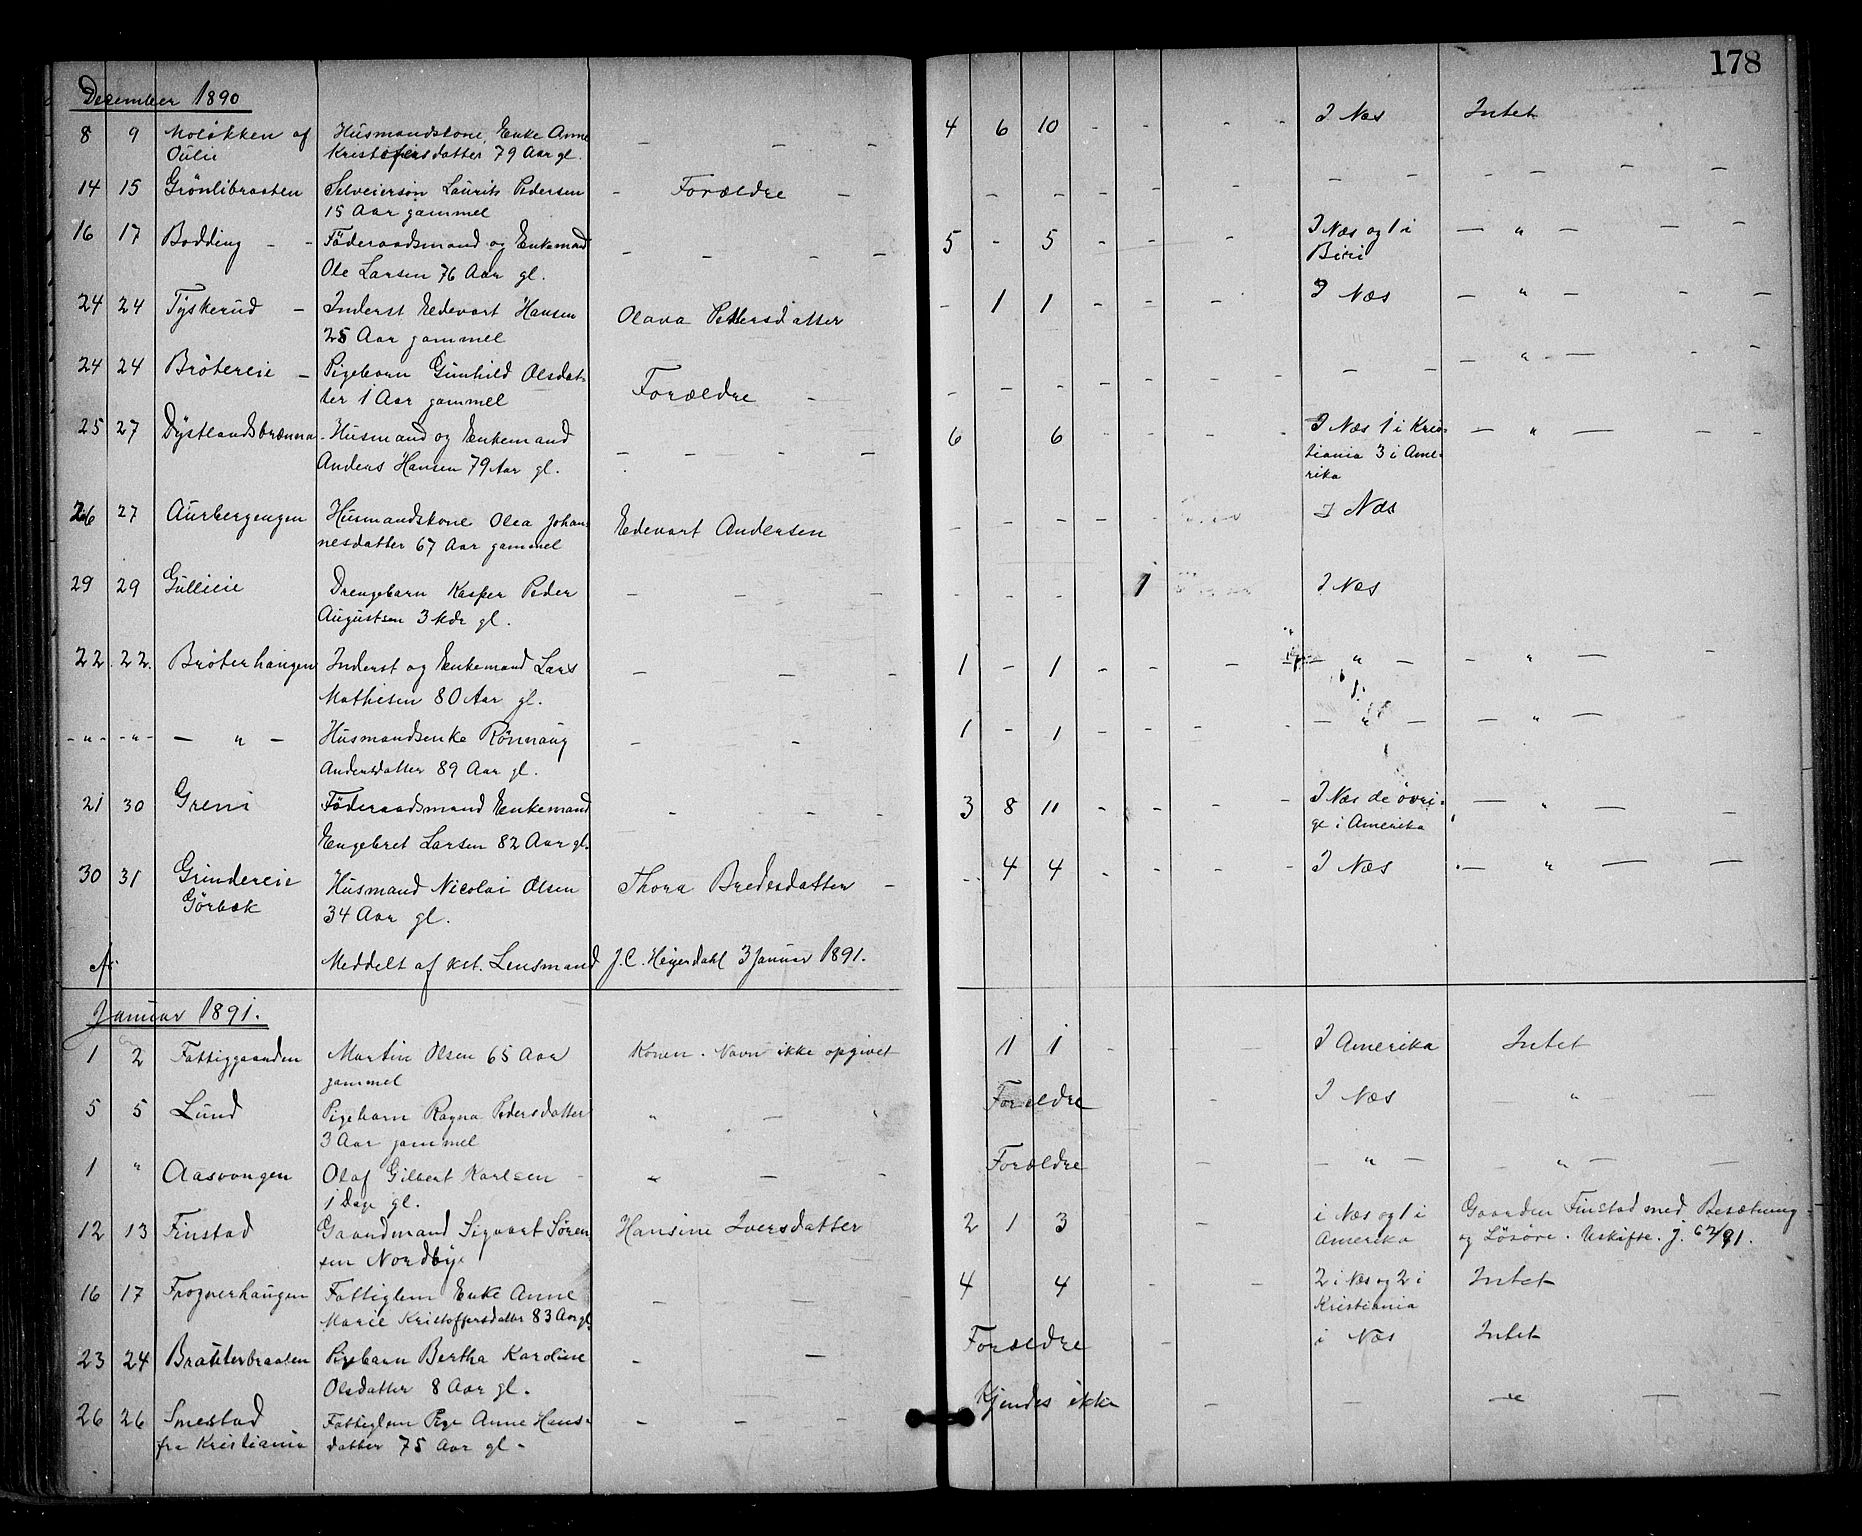 178
December 1890
8 9 Moløkken af Husmandskone Enke Anne — — — 4 6 10 - - - - I Næs Intet
Dulie Kristofersdatter 79 Aar gl.
14 15 Grönlibraaten Selveiersøn Laurits Pedersen - Forældre — — — — — — — — — — — —
15 Aar gammel
16 17 Bodding - - Föderaadsmand og Enkemand — — — — 5 - 5 - - - - I Næs og 1 i — " — — —
Ole Larsen 76 Aar gl. Biri
24 24 Tyskerud — Inderst Edevart Hansen Olava Pettersdatter - 1 1 - - - I Næs — " — — —
25 Aar gammel
24 24 Brötereie — Pigebarn Gunhild Olsdat- Forældre — - - - - - - - — — — " — — —
ter 1 Aar gammel
25 27 Dystlandsbrænna - Husmand og Enkemand — — — — 6 6 - - - - I Næs 1 i Kris- — " — — —
Anders Hansen 79 Aar gl. tiania 3 i Ame-
rika
26 27 Aurbergengen Husmandskone Olea Johan- Edevart Andersen - - - - - I Næs
nesdatter 67 Aar gammel
29 29 Gullieie Drengebarn Kasper Peder — — — — - - - - 1 I Næs
Augustsen 3 Mdr gl.
22. 22. Bröterhaugen Inderst og Enkemand Lars — — — 1 - 1 - - - — " — — " — —
Mathisen 80 Aar gl.
-"- -"- — " — Husmandsenke Rönnaug — — — 1 - 1 - - - — " — — " — —
Andersdatter 89 Aar gl.
21 30 Greni Föderaadsmand Enkemand - - - 3 8 11 - - - - I Næs de övri- — " — —
Engebret Larsen 82 Aar gl. ge i Amerika
30 31 Grindereie Husmand Nicolai Olsen Thora Bredesdatter — - 4 4 - - - - I Næs — " — —
Görbæk 34 Aar gl.
Meddelt af kst. Lensmand J. C. Heyerdahl 3 Januar 1891.
Januar 1891.
1 2 Fattiggaarden Martin Olsen 65 Aar Konen. Navn ikke opgivet 1 1 - - - I Amerika Intet
gammel
5 5 Lund Pigebarn Ragna Pedersdatter " — " Forældre I Næs — " — —
3 Aar gammel
1 " Aasvangen Olaf Gilbert Karlsen - " — - Forældre — — " — — " — —
1 Dage gl.
12 13 Finstad Gaardmand Sigvart Sören- Hansine Iversdatter 2 1 3 i Næs og 1 i Gaarden Finstad med Besætning
sen Nordbye Amerika og Lösöre. Uskifte. j. 62/91.
16 17 Frognerhaugen Fattiglem Enke Anne — — — 4 4 - - 2 i Næs og 2 i Intet
Marie Kristoffersdatter 83 Aar gl. Kristiania
23 24 Pigebarn Bertha Karoline — — Forældre - i Næs Intet
Olsdatter 8 Aar gl.
26 26 Smestad Fattiglem Pige Anne Hans- — — — Kjendes ikke — — — —
fra Kristiania datter 75 Aar gl -